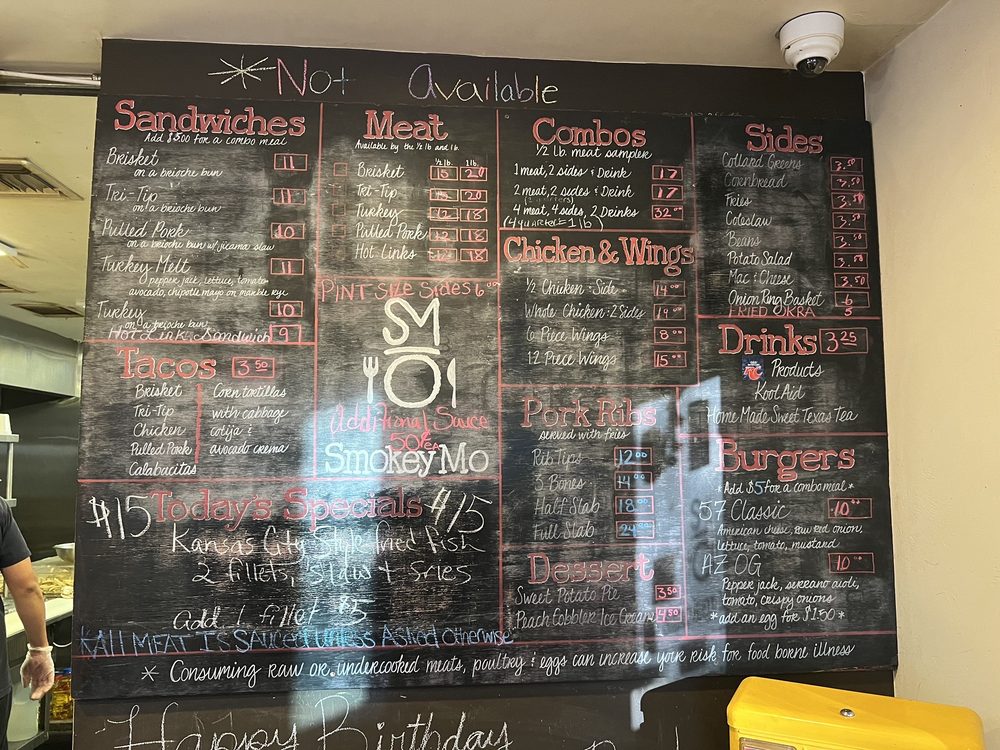 *Not Available
Sandwiches
Add $5.00 for a combo meal
Brisket 11
on a brioche bun
Tri-Tip 11
on a brioche bun
Pulled Pork 10
on a brioche bun w/ jicama slaw
Turkey Melt 11
pepper jack, lettuce, tomato
avocado, chipotle mayo on marble rye
Turkey 10
on a brioche bun
Hot Link Sandwich 9
Tacos 3.50
Brisket
Tri-Tip
Chicken
Pulled Pork
Calabacitas
Corn tortillas
with cabbage
cotija &
avocado crema
Meat
Available by the ½ lb. and lb.
½ lb. 1 lb.
Brisket 15 20
Tri-Tip 15 20
Turkey 12 18
Pulled Pork 12 18
Hot Links 12 18
PINT SIZE SIDES 6.00
SM
O
Additional Sauce
50¢ EA
Smokey Mo
Combos
½ lb. meat sampler
1 meat, 2 sides & Drink 17
2 meat, 2 sides & Drink 17
4 meat, 4 sides, 2 Drinks 32.00
(4 quarters = 1 lb)
Chicken & Wings
½ Chicken 1 Side 14.00
Whole Chicken 2 Sides 19.00
6 Piece Wings 8.00
12 Piece Wings 15.00
Pork Ribs
served with fries
Rib Tips 12.00
3 Bones 14.00
Half Slab 18.00
Full Slab 24.00
Dessert
Sweet Potato Pie 3.50
Peach Cobbler Ice Cream 4.50
Sides
Collard Greens 3.50
Cornbread 3.50
Fries 3.50
Coleslaw 3.50
Beans 3.50
Potato Salad 3.50
Mac & Cheese 3.50
Onion Ring Basket 6
FRIED OKRA 5
Drinks 3.25
RC Products
Kool Aid
Home Made Sweet Texas Tea
Burgers
*Add $5 for a combo meal*
57 Classic 10.00
American cheese, raw red onion,
lettuce, tomato, mustard
AZ OG 10.00
Pepper jack, serrano aioli,
tomato, crispy onions
*add an egg for $1.50*
$15 Today's Specials $15
Kansas City Style fried fish
2 fillets, slaw & fries
add 1 fillet $5
*All MEAT IS SAUCED UNLESS ASKED OTHERWISE
* Consuming raw or undercooked meats, poultry & eggs can increase your risk for food borne illness
Happy Birthday